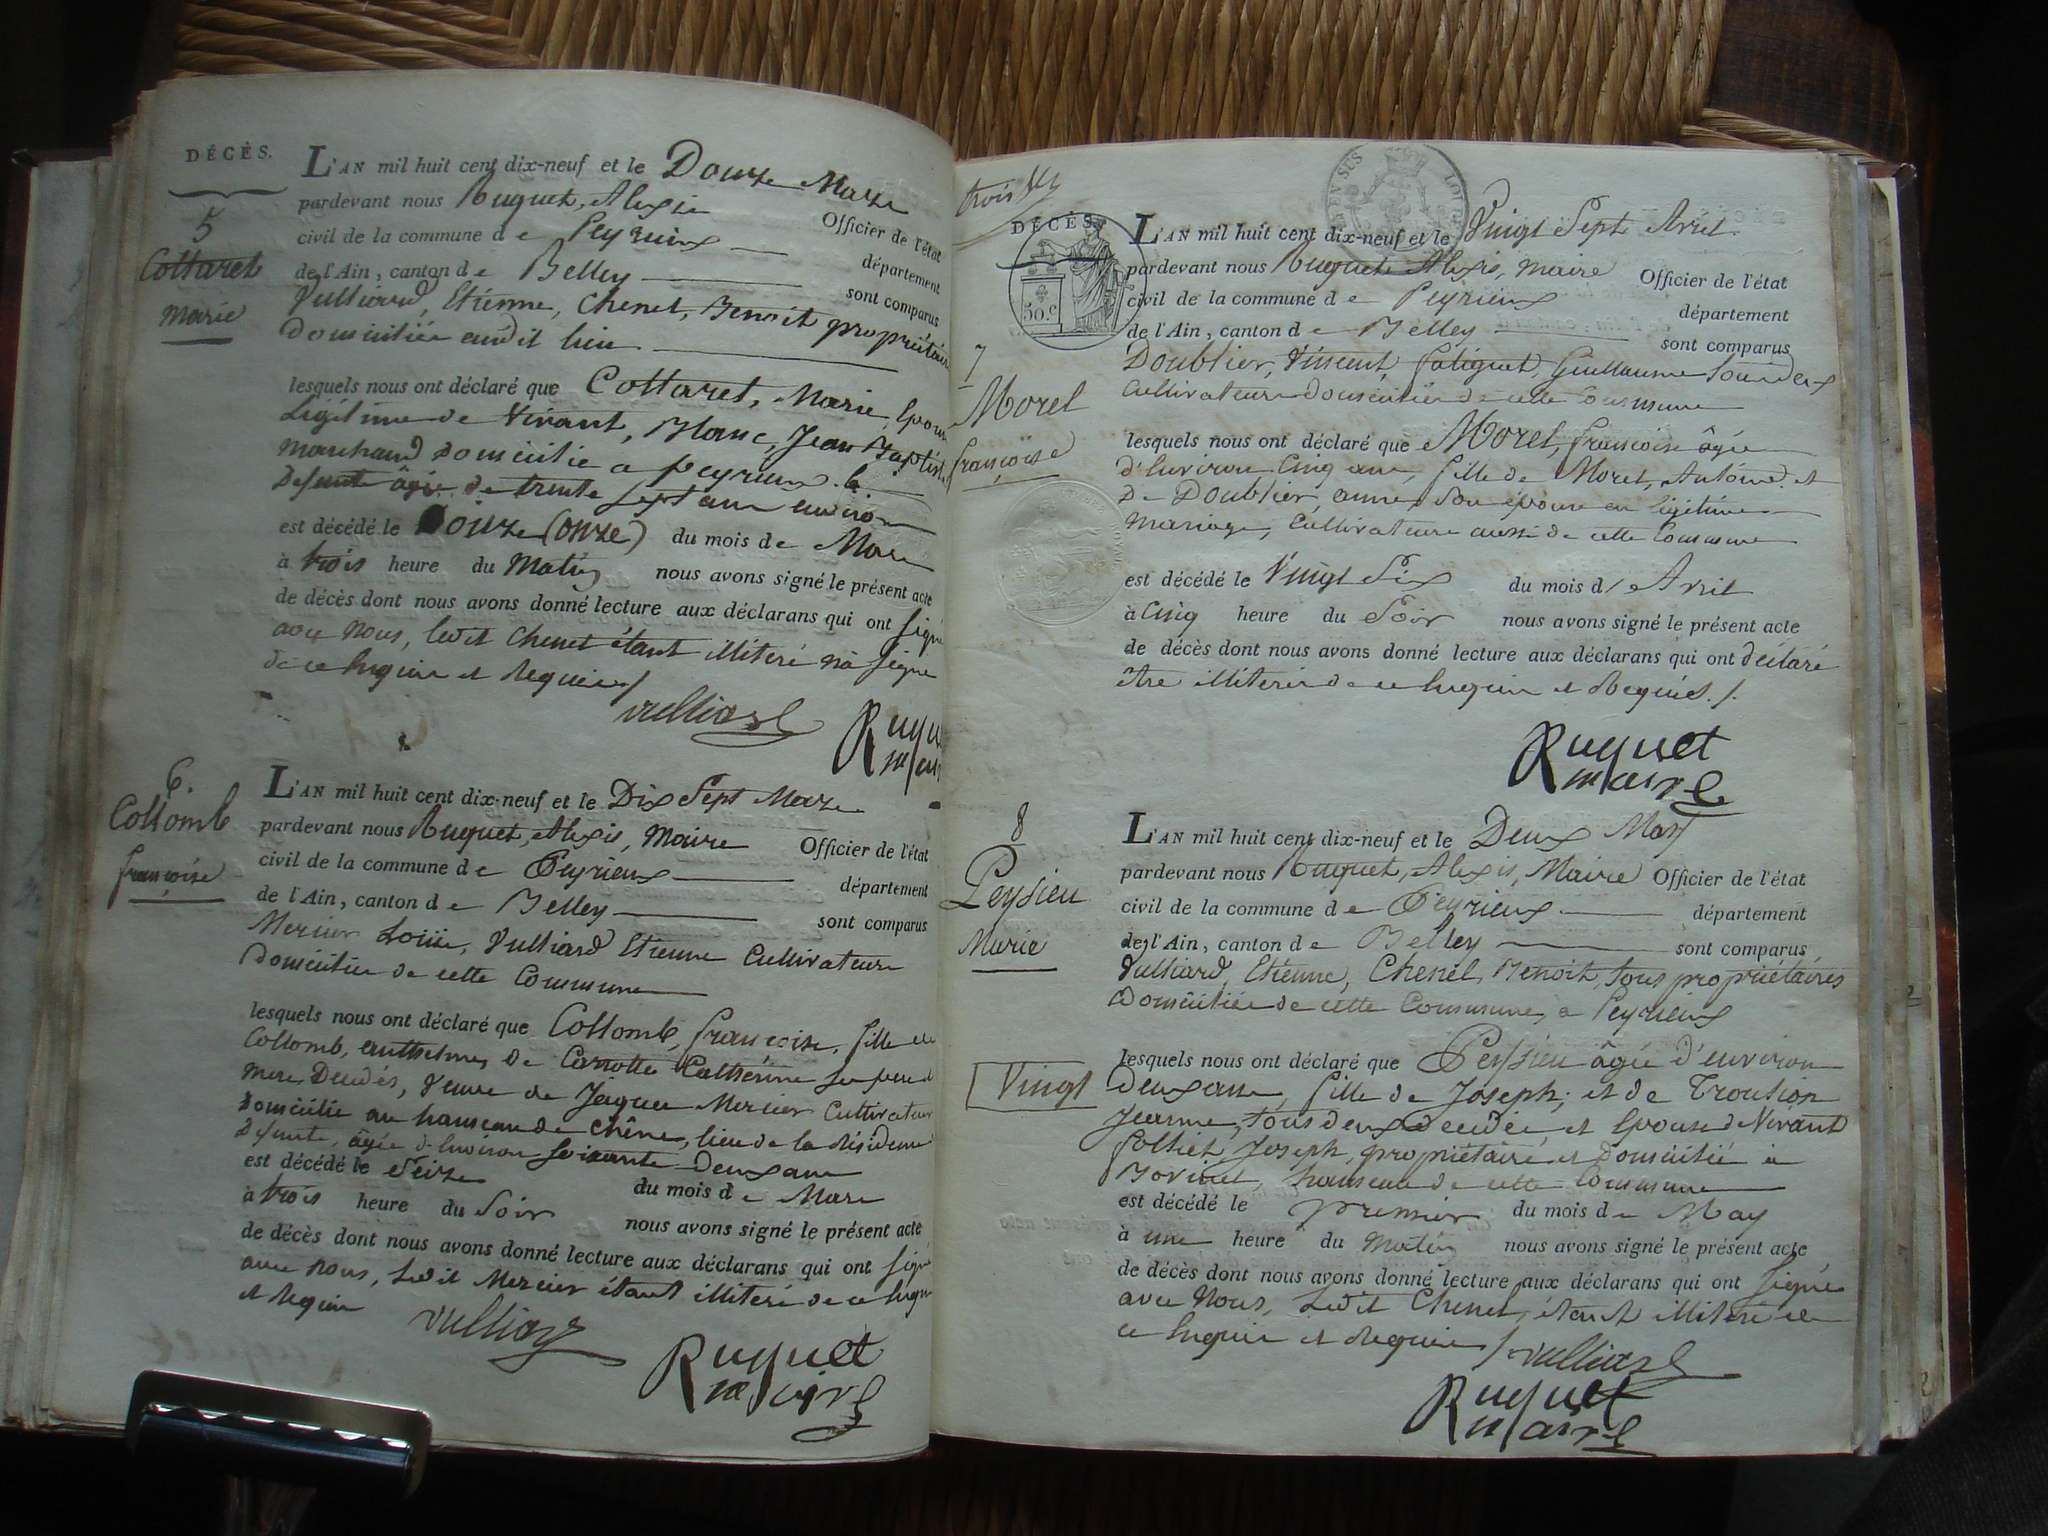 DÉCÈS.
5
Cottaret
Marie
L'AN mil huit cent dix-neuf et le Douze Mars
pardevant nous Ruguet, Alexis
Officier de l'état
civil de la commune de Peyrieux
département
de l'Ain, canton de Belley
sont comparus
Vulliard, Etienne, Chenel, Benoit propriétaires
Domiciliée audit lieu
lesquels nous ont déclaré que Cottaret, Marie, Epouse
Légitime de Vivant, Blanc, Jean Baptiste
Marchand domicilié a peyrieux. la
Defunte âgée de trente sept ans environ
est décédé le onze (onze) du mois de Mars
à trois heure du Matin nous avons signé le présent acte
de décès dont nous avons donné lecture aux déclarans qui ont signé
avec Nous, ledit Chenel étant illiteré n'a signé
de ce Enquis et Requis ./
Vulliard
Ruguet
maire
6.
Collomb
françoise
L'AN mil huit cent dix-neuf et le Dix Sept Mars
pardevant nous Ruguet, Alexis, Maire Officier de l'état
civil de la commune de Peyrieux
département
de l'Ain, canton de Belley
sont comparus
Mercier Louis, Vulliard Etienne Cultivateurs
Domiciliés de cette Commune
lesquels nous ont déclaré que Collomb, françoise, fille de
Collomb, anthelme, de Catherine ses pere et
mere Decédés, Veuve de Jaques Mercier Cultivateur
Domicilié au hameau de Chêne, lieu de la Résidence
Defunte, âgée d'Environ soixante Deux ans
est décédé le Seize du mois de Mars
à trois heure du Soir nous avons signé le présent acte
de décès dont nous avons donné lecture aux déclarans qui ont signé
avec Nous, Ledit Mercier étant illiteré de ce Enquis
et Requis
Vulliard
Ruguet
maire
DÉCÈS.
50.c
7
Morel
françoise
L'AN mil huit cent dix-neuf et le Vingt Sept Avril
pardevant nous Ruguet Alexis, maire Officier de l'état
civil de la commune de Peyrieux
département
de l'Ain, canton de Belley
sont comparus
Doublier, Vincent, Guillaume tous deux
Cultivateurs Domiciliés de cette Commune
lesquels nous ont déclaré que Morel, françoise âgée
d'Environ Cinq ans, fille de Morel, Antoine. et
De Doublier, anne, Son épouse en légitime
Mariage, Cultivateurs aussi de cette Commune
est décédé le Vingt Six du mois de Avril
à Cinq heure du Soir nous avons signé le présent acte
de décès dont nous avons donné lecture aux déclarans qui ont déclaré
être illiterés de ce Enquis et Requis ./.
Ruguet
maire
8
Peysieu
Marie
Vingt
L'AN mil huit cent dix-neuf et le Deux May
pardevant nous Ruguet, Alexis, Maire Officier de l'état
civil de la commune de Peyrieux
département
de l'Ain, canton de Belley
sont comparus
Vulliard, Etienne, Chenel, Benoit, tous propriétaires
Domiciliée de cette Commune, a Peyrieux
lesquels nous ont déclaré que Peysieu âgée d'environ
Deux ans, fille de Joseph; et de
Jeanne, tous deux Decédée, et Epouse de Vivant
Joseph, propriétaire et domicilié a
hameau de cette Commune
est décédé le premier du mois de May
à une heure du matin nous avons signé le présent acte
de décès dont nous avons donné lecture aux déclarans qui ont Signé
avec Nous, Ledit Chenel, étant illiteré de
ce Enquis et Requis / Vulliard
Ruguet
maire